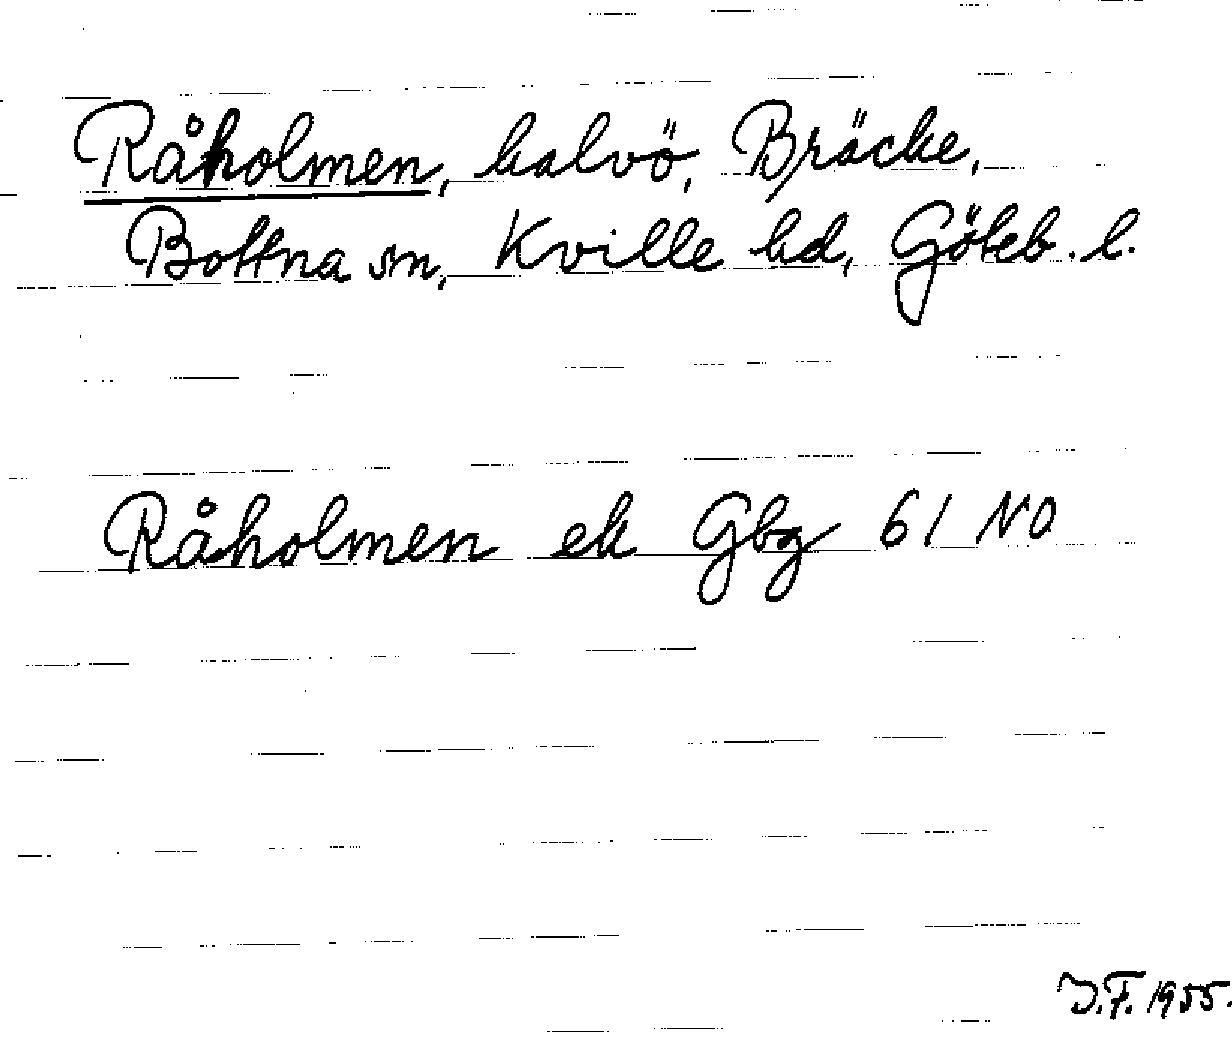 Råholmen, halvö, Bräcke,
Bottna sn, Kville hd, Göteb. l.
Råholmen ek Gbg 61 NO
J.F. 1955.